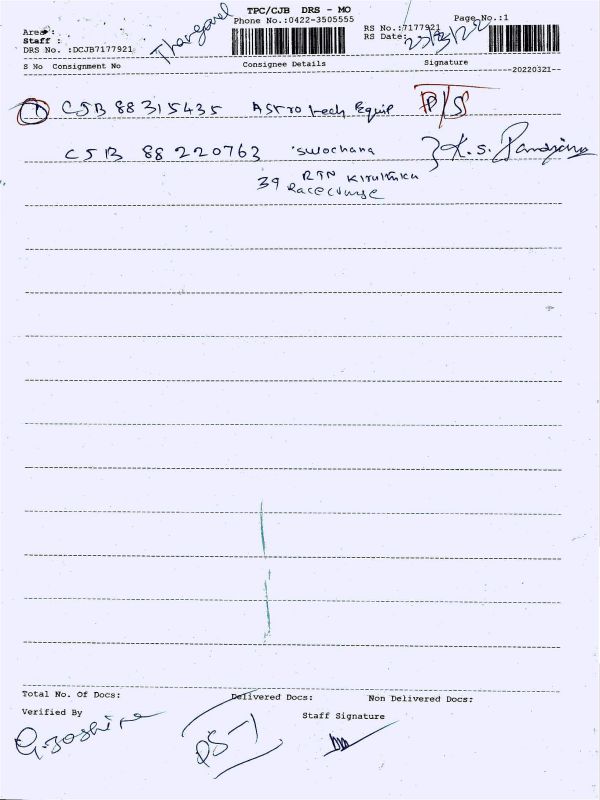 TPC/CJB DRS - MO
Phone No.:0422-3505555
Area :
Staff :
DRS No. :DCJB7177921
Thangavel
RS No.:7177921
RS Date:
Page No.:1
S No Consignment No Consignee Details Signature
--20220321--
1 CJB 88315435 Astro tech Equip P/S
CJB 88 220763 Swochana K.S.
39 RTN
Racecourse
Total No. Of Docs: Delivered Docs: Non Delivered Docs:
Verified By Staff Signature